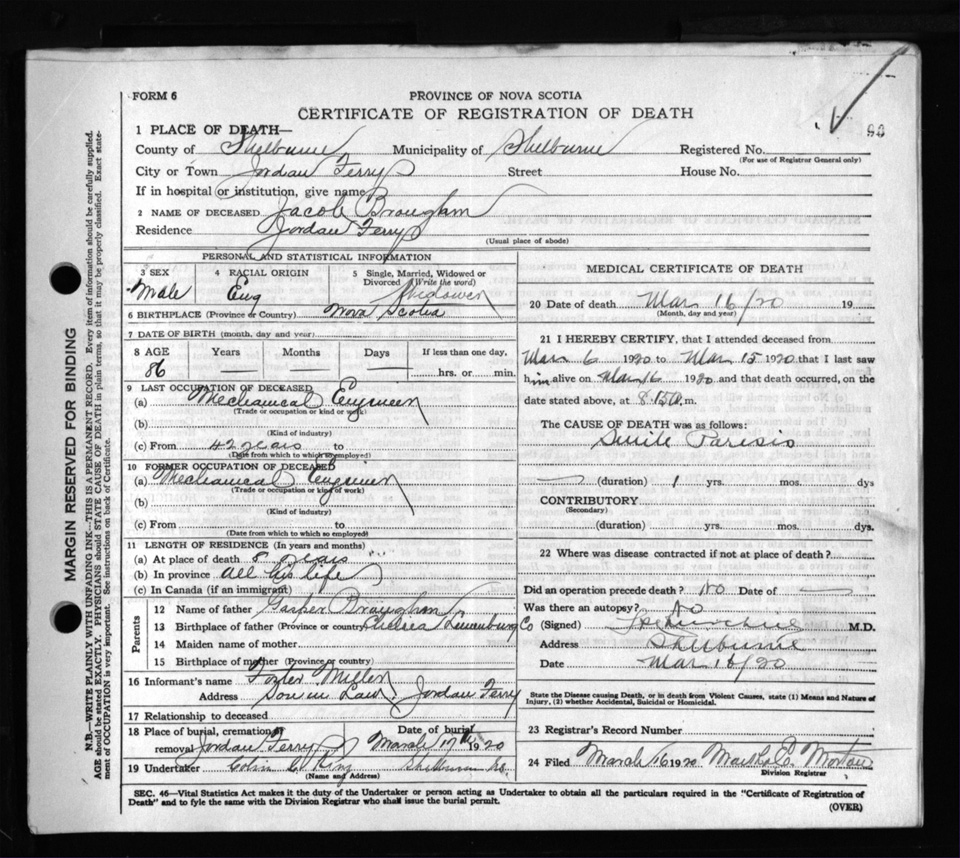 FORM 6
PROVINCE OF NOVA SCOTIA
CERTIFICATE OF REGISTRATION OF DEATH
1 PLACE OF DEATH—
County of Shelburne Municipality of Shelburne Registered No.
(For use of Registrar General only)
City or Town Jordan Ferry Street House No.
If in hospital or institution, give name
2 NAME OF DECEASED Jacob Brougham
Residence Jordan Ferry
(Usual place of abode)
PERSONAL AND STATISTICAL INFORMATION
3 SEX Male
4 RACIAL ORIGIN Eng
5 Single, Married, Widowed or Divorced (Write the word) Widower
6 BIRTHPLACE (Province or Country) Nova Scotia
7 DATE OF BIRTH (month, day and year)
8 AGE Years Months Days If less than one day,
86 — — — hrs. or min.
9 LAST OCCUPATION OF DECEASED
(a) Mechanical Engineer
(Trade or occupation or kind of work)
(b)
(Kind of industry)
(c) From 42 years to
(Date from which to which so employed)
10 FORMER OCCUPATION OF DECEASED
(a) Mechanical Engineer
(Trade or occupation or kind of work)
(b)
(Kind of industry)
(c) From to
(Date from which to which so employed)
11 LENGTH OF RESIDENCE (In years and months)
(a) At place of death 8 years
(b) In province All his life
(c) In Canada (if an immigrant)
Parents
12 Name of father Brougham
13 Birthplace of father (Province or country) Chelsea Lunenburg Co
14 Maiden name of mother
15 Birthplace of mother (Province or country)
16 Informant's name Foster Miller
Address Son in Law Jordan Ferry
17 Relationship to deceased
18 Place of burial, cremation, Date of burial
removal Jordan Ferry March 17th 1920
19 Undertaker Colin C King Shelburne NS
(Name and Address)
MEDICAL CERTIFICATE OF DEATH
20 Date of death Mar 16/20 19
(Month, day and year)
21 I HEREBY CERTIFY, that I attended deceased from
Mar 6 1920 to Mar 15 1920 that I last saw
him alive on Mar 16 1920 and that death occurred, on the
date stated above, at 8.15 m.
The CAUSE OF DEATH was as follows:
Senile Paresis
— (duration) 1 yrs. mos. dys
CONTRIBUTORY
(Secondary)
(duration) yrs. mos. dys.
22 Where was disease contracted if not at place of death?
Did an operation precede death? No Date of —
Was there an autopsy? No
(Signed) M.D.
Address Shelburne
Date Mar 16/20
State the Disease causing Death, or in death from Violent Causes, state (1) Means and Nature of
Injury, (2) whether Accidental, Suicidal or Homicidal.
23 Registrar's Record Number
24 Filed March 16 1920 Martha C. Morton
Division Registrar
SEC. 46—Vital Statistics Act makes it the duty of the Undertaker or person acting as Undertaker to obtain all the particulars required in the "Certificate of Registration of
Death" and to fyle the same with the Division Registrar who shall issue the burial permit.
(OVER)
MARGIN RESERVED FOR BINDING
N.B.—WRITE PLAINLY WITH UNFADING INK—THIS IS A PERMANENT RECORD. Every item of information should be carefully supplied.
AGE should be stated EXACTLY. PHYSICIANS should STATE CAUSE OF DEATH in plain terms, so that it may be properly classified. Exact state-
ment of OCCUPATION is very important. See instructions on back of Certificate.